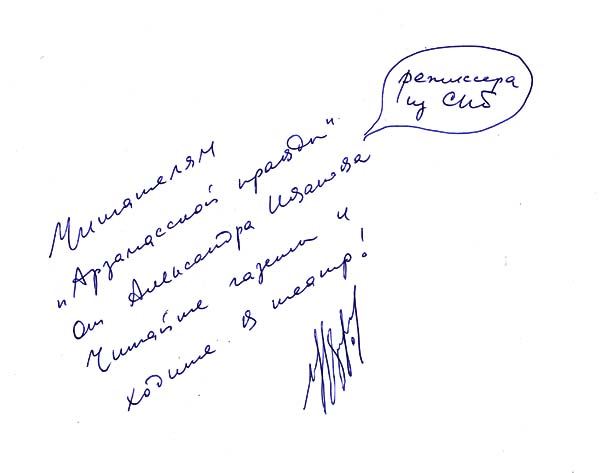 Читателям
„Арзамасской правды"
от Александра Иванова
режиссера
из СПб
Читайте газеты и
ходите в театр!